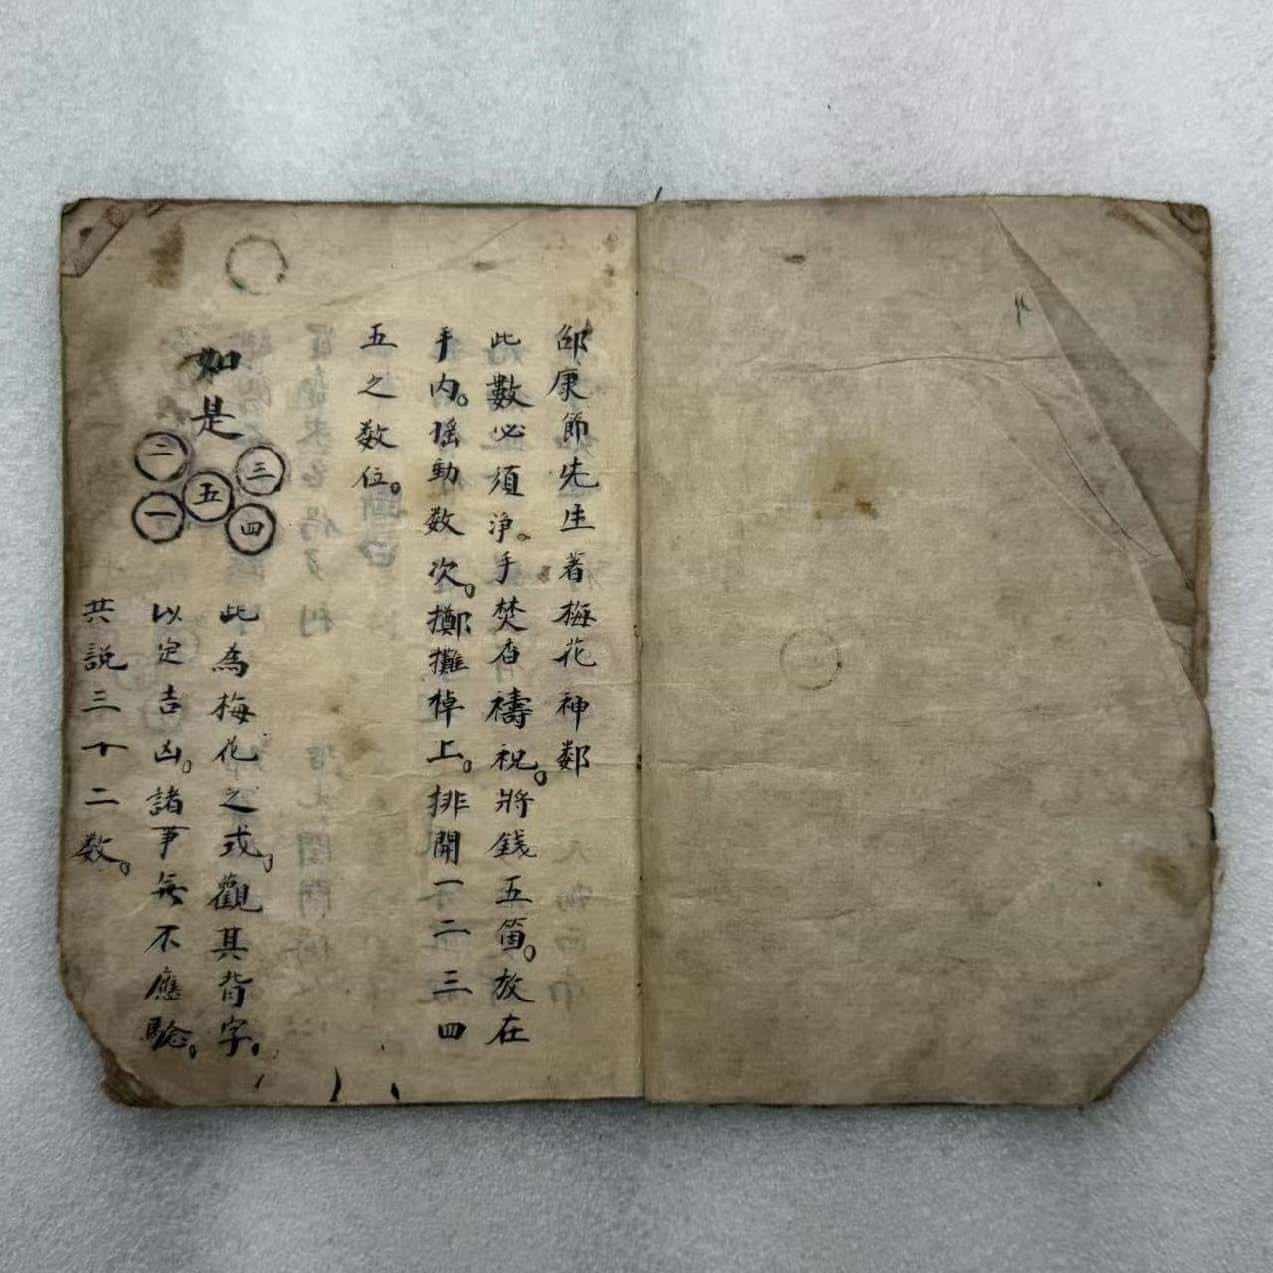 邵康節先生著梅花神數
此數必須净。手焚香禱祝。將錢五箇。放在
手内。摇動数次。擲攤棹上。排開一二三四
五之数位。
如是
二
三
五
一
四
此為梅花之式。觀其背字。
以定吉凶。諸事無不應驗。
共説三十二数。